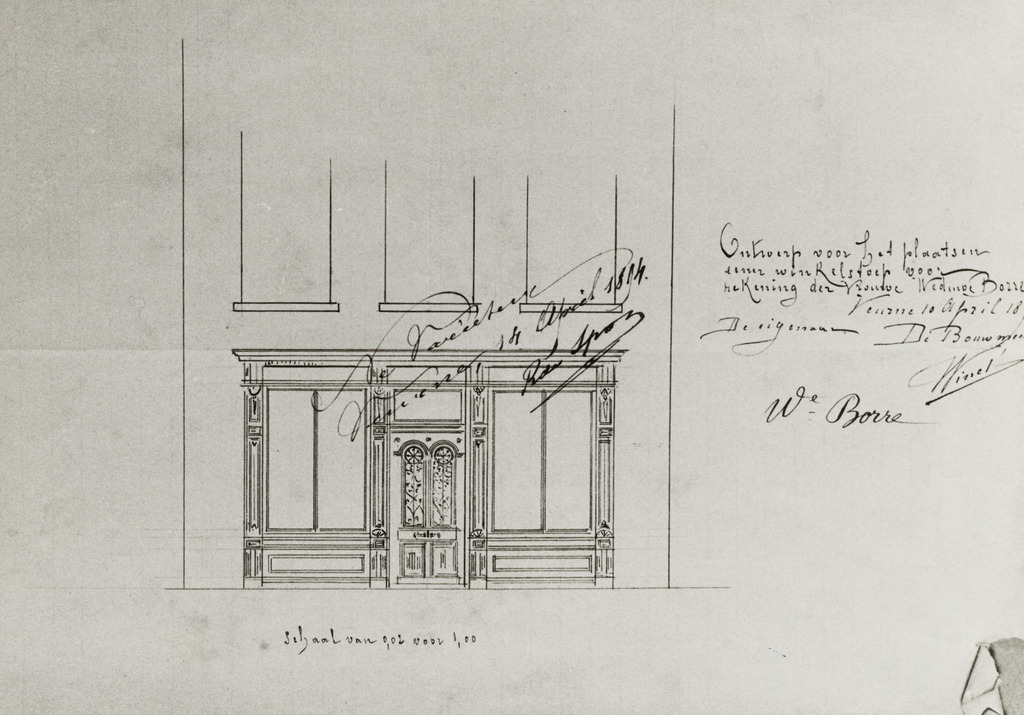 Ontwerp voor het plaatsen
eener winkelstoep voor
rekening der Vrouwe Weduwe Borre
Veurne 10 April 18
De eigenaar De Bouwmee
Wᵉ Borre
14 April 1894.
Schaal van 0,02 voor 1,00